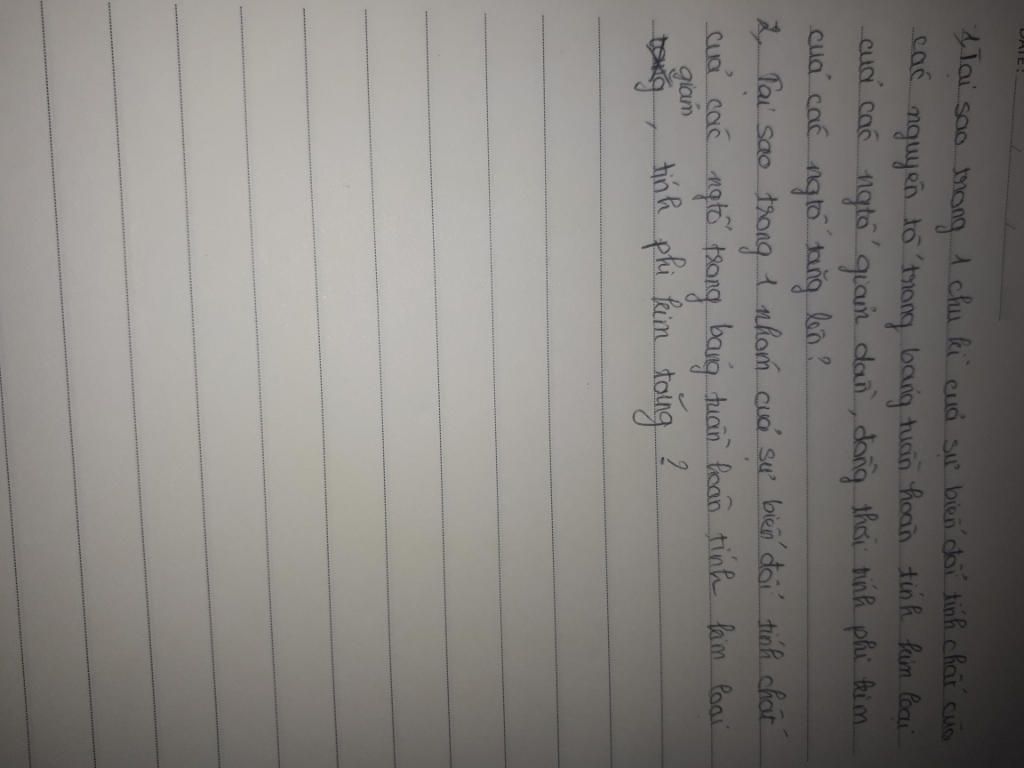 DATE:
1, Tại sao trong 1 chu kì của sự biến đổi tính chất của
các nguyên tố trong bảng tuần hoàn tính kim loại
của các ngtố giảm dần, đồng thời tính phi kim
của các ngtố tăng lên?
2, Tại sao trong 1 nhóm của sự biến đổi tính chất
của các ngtố trong bảng tuần hoàn, tính kim loại
giảm, tính phi kim tăng?